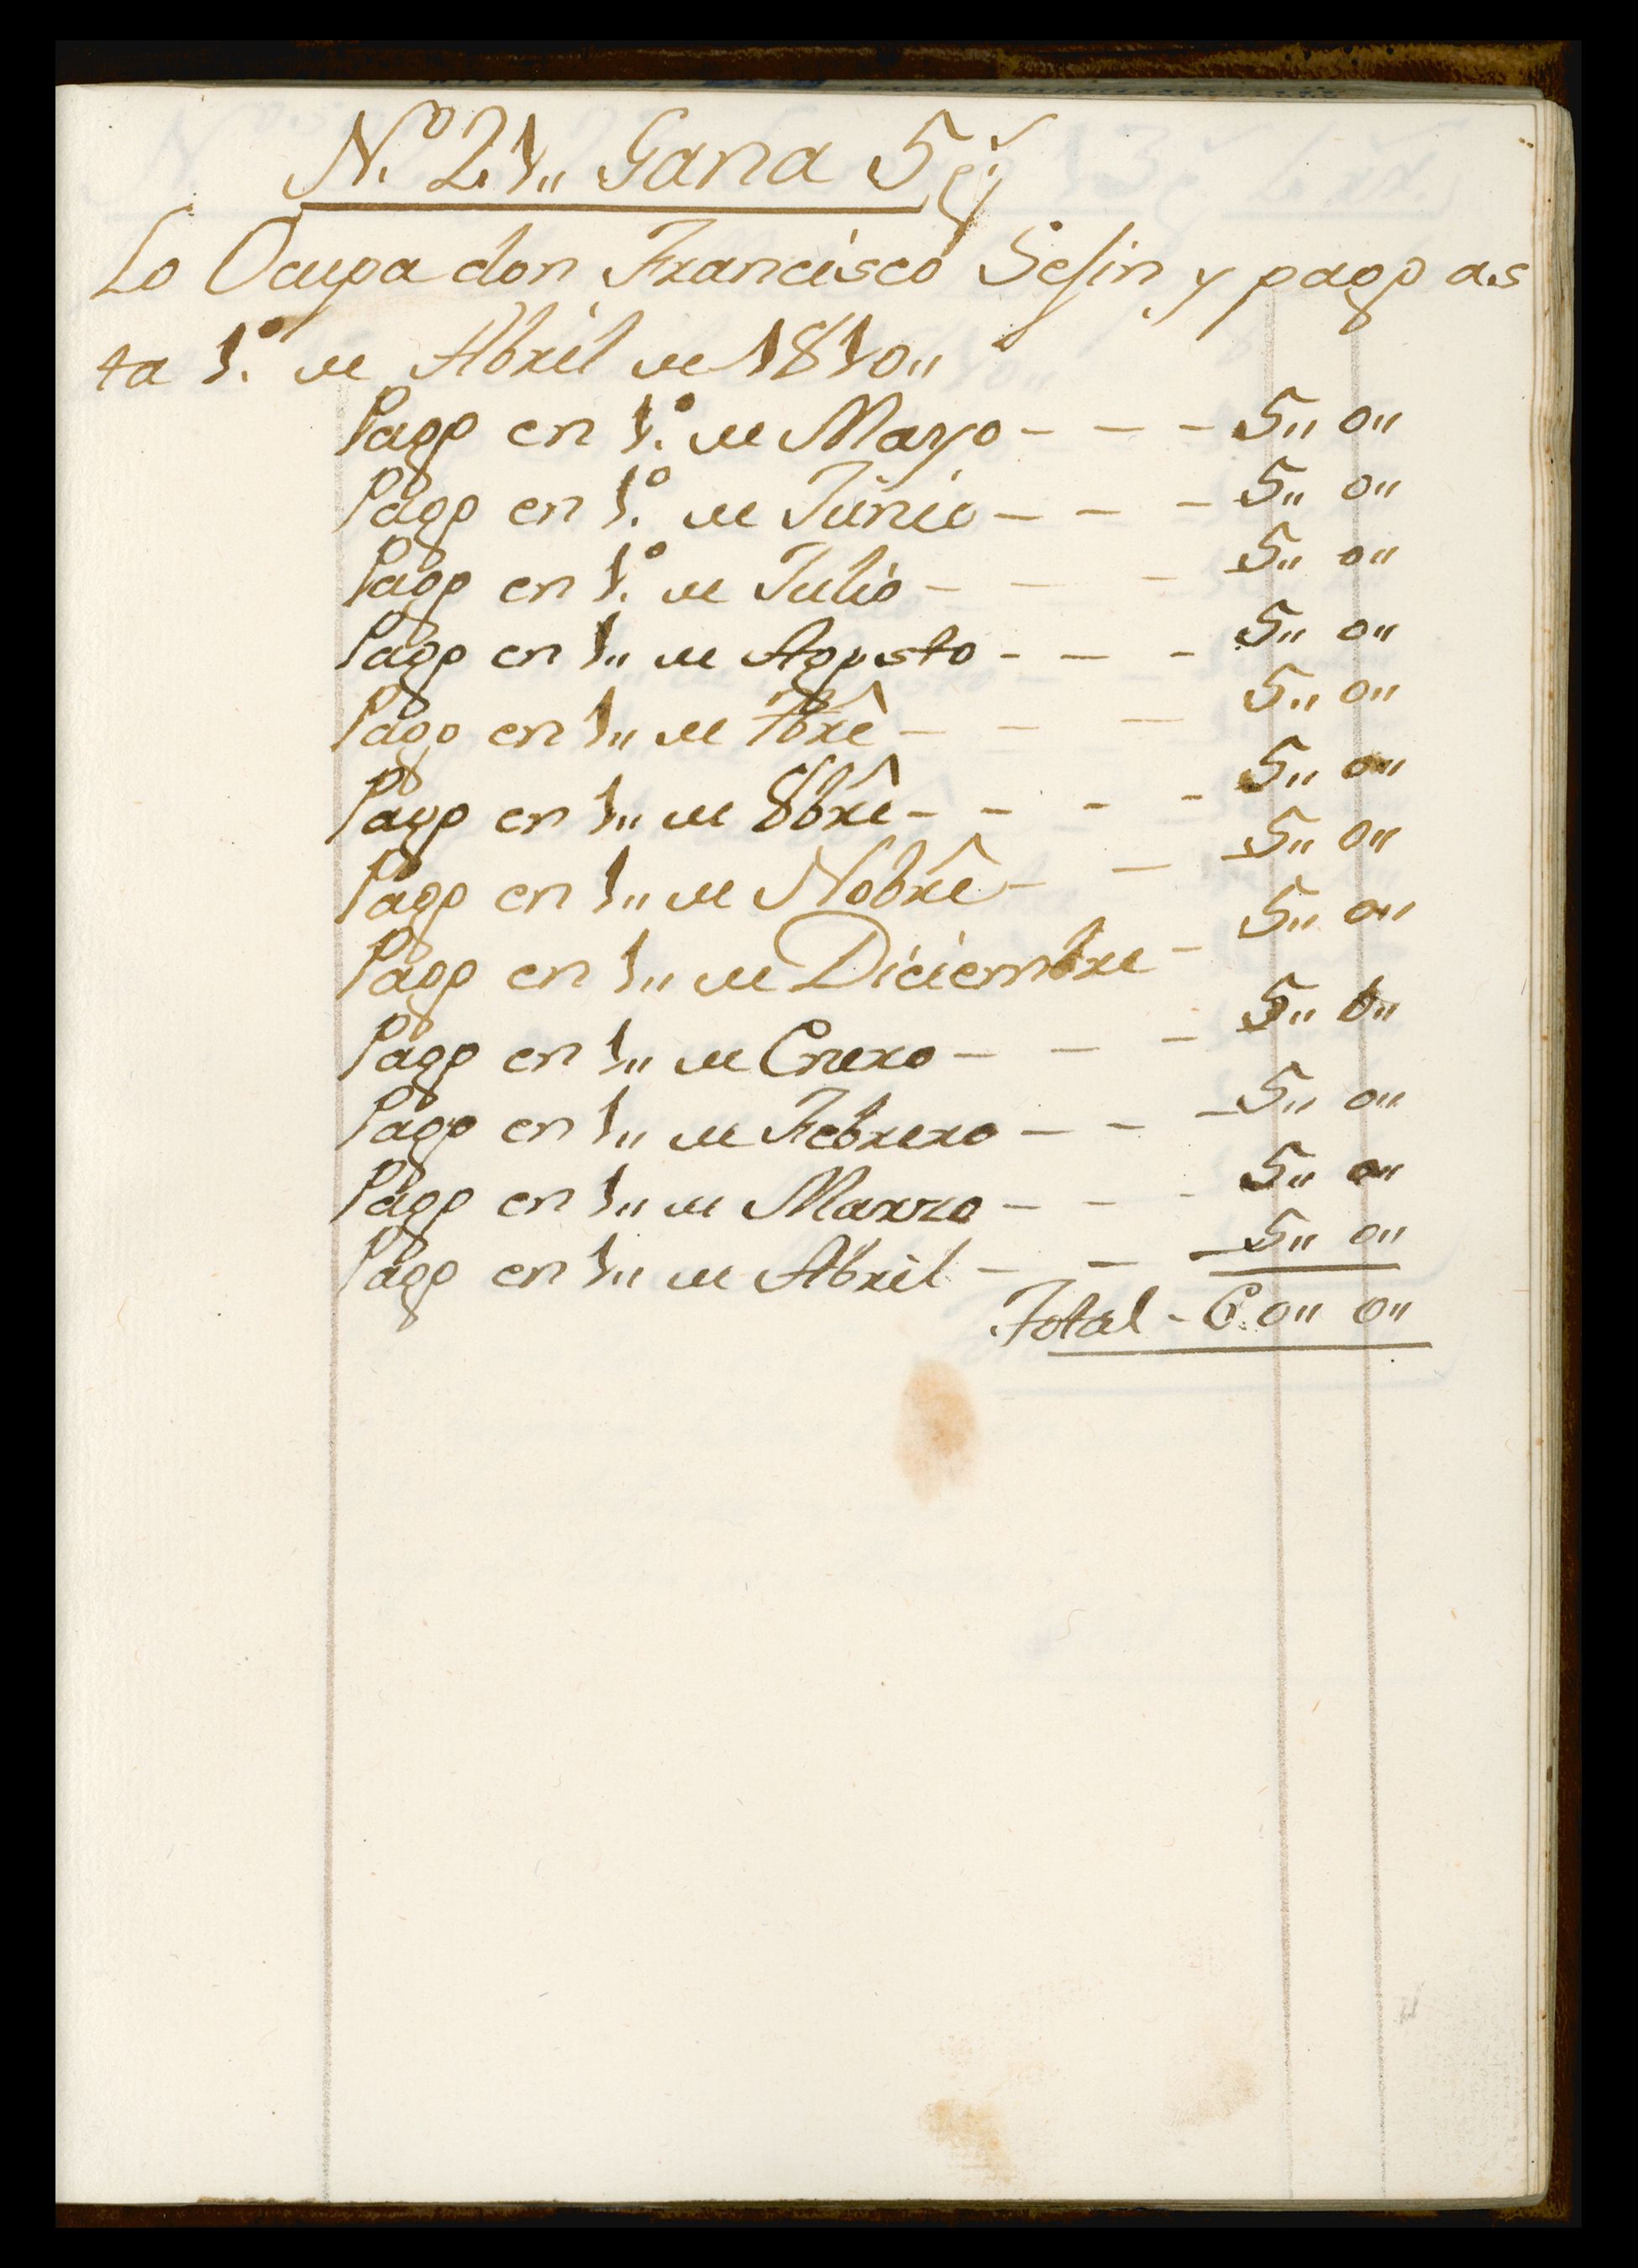 N.º 21,, Gana 5 p.s
Lo Ocupa don Francisco Sesin y pago as
ta 1.º de Abril de 1810,,
Pago en 1.º de Mayo - - - 5,, 0,,
Pago en 1.º de Junio - - - 5,, 0,,
Pago en 1.º de Julio - - - 5,, 0,,
Pago en 1,, de Agosto - - - 5,, 0,,
Pago en 1,, de 7bre - - - 5,, 0,,
Pago en 1,, de 8bre - - - - 5,, 0,,
Pago en 1,, de Nobre - - - 5,, 0,,
Pago en 1,, de Diciembre - 5,, 0,,
Pago en 1,, de Enero - - - 5,, 0,,
Pago en 1,, de Febrero - - - 5,, 0,,
Pago en 1,, de Marzo - - - 5,, 0,,
Pago en 1,, de Abril - - - 5,, 0,,
Total - 60,, 0,,